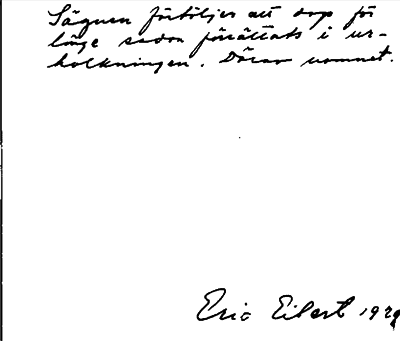 Sägnen förtäljer att dop för
länge sedan förättats i ur-
holkningen. Därav namnet.
Eric Eilert 192